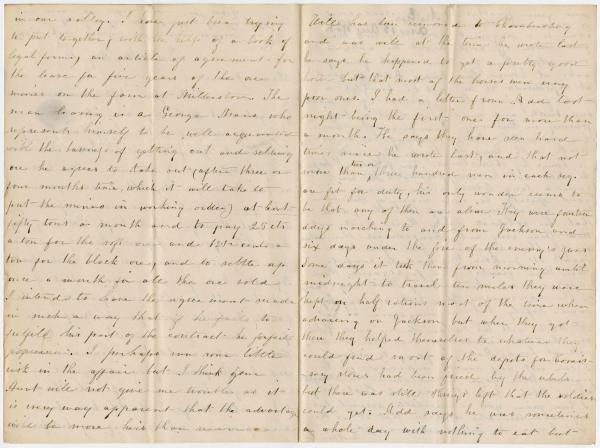 in our valley. I have just been trying
to put together, with the help of a book of
legal forms, an article of agreement for
the lease for five years of the ore
mines on the farm at Millerstown. The
man leasing is a George Hains who
represents himself to be well acquainted
with the business of getting out and selling
ore he agrees to take out (after three or
four months time, which it will take to
put the mines in working order) at least
fifty tons a month and to pay 25 cts
a ton for the soft ore and 12½ cents a
ton for the block ore, and to settle up
once a month for all the ore sold
I intend to have the agreement made
in such a way that if he fails to
fulfill his part of the contract he forfeits
possession. I perhaps run some little
risk in the affair but I think your
Aunt will not give me trouble as it
is very apparent that the advantage
will be more hers than
Will has been removed to Chambersburg
and was well at the time he wrote last
he says he happened to get a pretty good
horse but that most of the horses were very
poor ones. I had a letter from Add last
night being the first one for more than
a month. He says they have seen hard
times since he wrote last, and that not
more than two or three hundred men in each reg.
are fit for duty, his only wonder seems to
be that any of them are alive. They were fourteen
days marching to and from Jackson and
six days under the fire of the enemy's guns
Some days it took them from morning until
midnight to travel ten miles they were
kept on half rations most of the time when
advancing on Jackson but when they got
there they helped themselves to whatever they
could find most of the depots for
stores had been fired by the rebels
but there was still things left that the soldiers
could get. Add says he was sometimes
a whole day with nothing to eat but